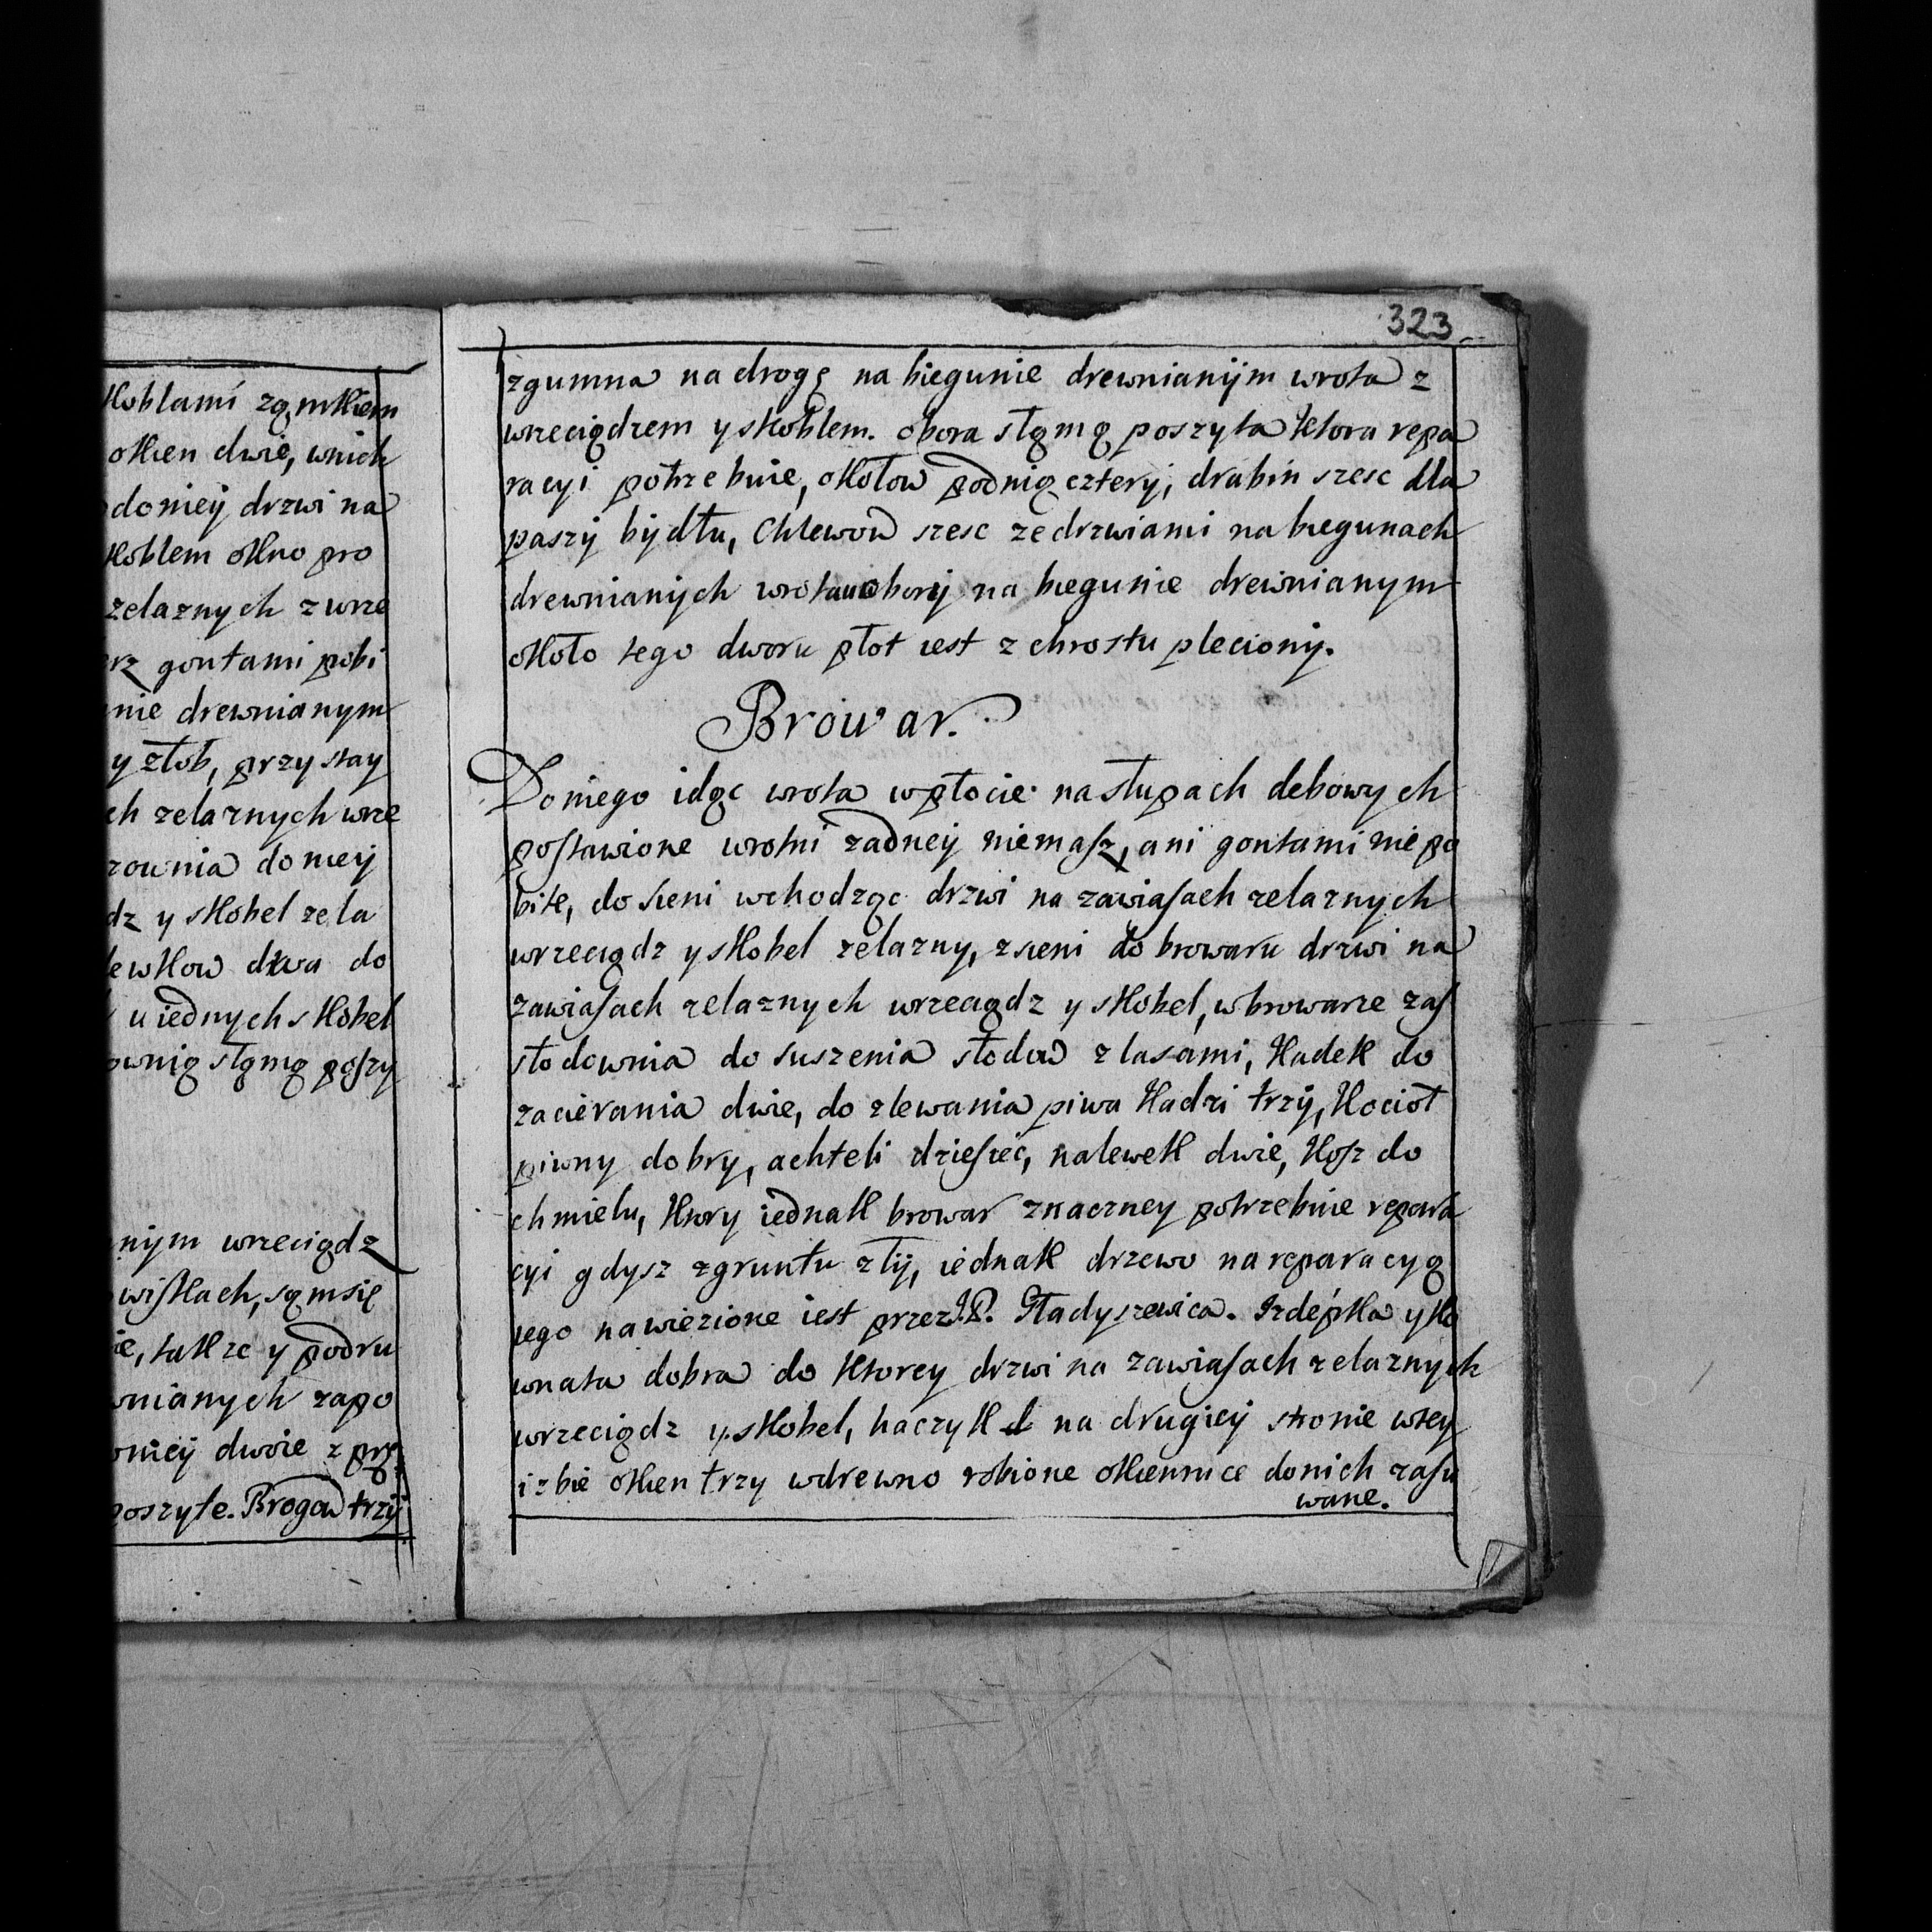 Koblami zą mkiem
okien dwie, wnich
doniey drzwi na
skoblem okno pro
zelaznych zwrze
rz gontami pobi
nie drewnianym
y złob, przy stay
ch zelaznych wrze
rownia do niey
dz y skobel zela
lewkow dwa do
u iednych skobel
ownią słąmą poszy
nym wrzeciądz
wiskach, sąmsię
ie, takze y podru
wnianych zapo
oniey dwoie z prę
poszyte. Brogow trzÿ
323
zgumna na drogę na biegunie drewnianÿm wrota z
wrzeciądzem y skoblem. obora słąmą poszyta ktora repa
racyi potrzebuie, okołow podnią czterÿ, drabin szesc dla
paszÿ bÿdłu, Chlewow szesc ze drzwiami na biegunach
drewnianÿch wrota u oborÿ na biegunie drewnianym
około tego dworu płot iest z chrostu pleciony.
Browar.
Doniego idąc wrota wpłocie na słupach debowych
postawione wrotni zadney niemasz, ani gontami nie po
bite, do sieni wchodząc drzwi na zawiasach zelaznych
wrzeciądz y skobel zelazny, zsieni do browaru drzwi na
zawiasach zelaznych wrzeciądz y skobel, wbrowarze zas
słodownia do suszenia słodow z lasami, Kadek do
zacierania dwie, do zlewania piwa Kadzi trzÿ, Kocioł
piwny dobry, achteli dziesięc, nalewek dwie, Kosz do
chmielu, Ktory iednak browar znaczney potrzebuie repara
cyi gdysz zgruntu złÿ, iednak drzewo na reparacyą
iego nawiezione iest przez J.P. Gładyszewica. Izdepka y Ko
wnata dobra do Ktorey drzwi na zawiasach zelaznych
wrzeciądz y skobel, haczyk na drugiey stronie wtey
izbie okien trzy wdrewno robione okiennice donich zasu
wane.